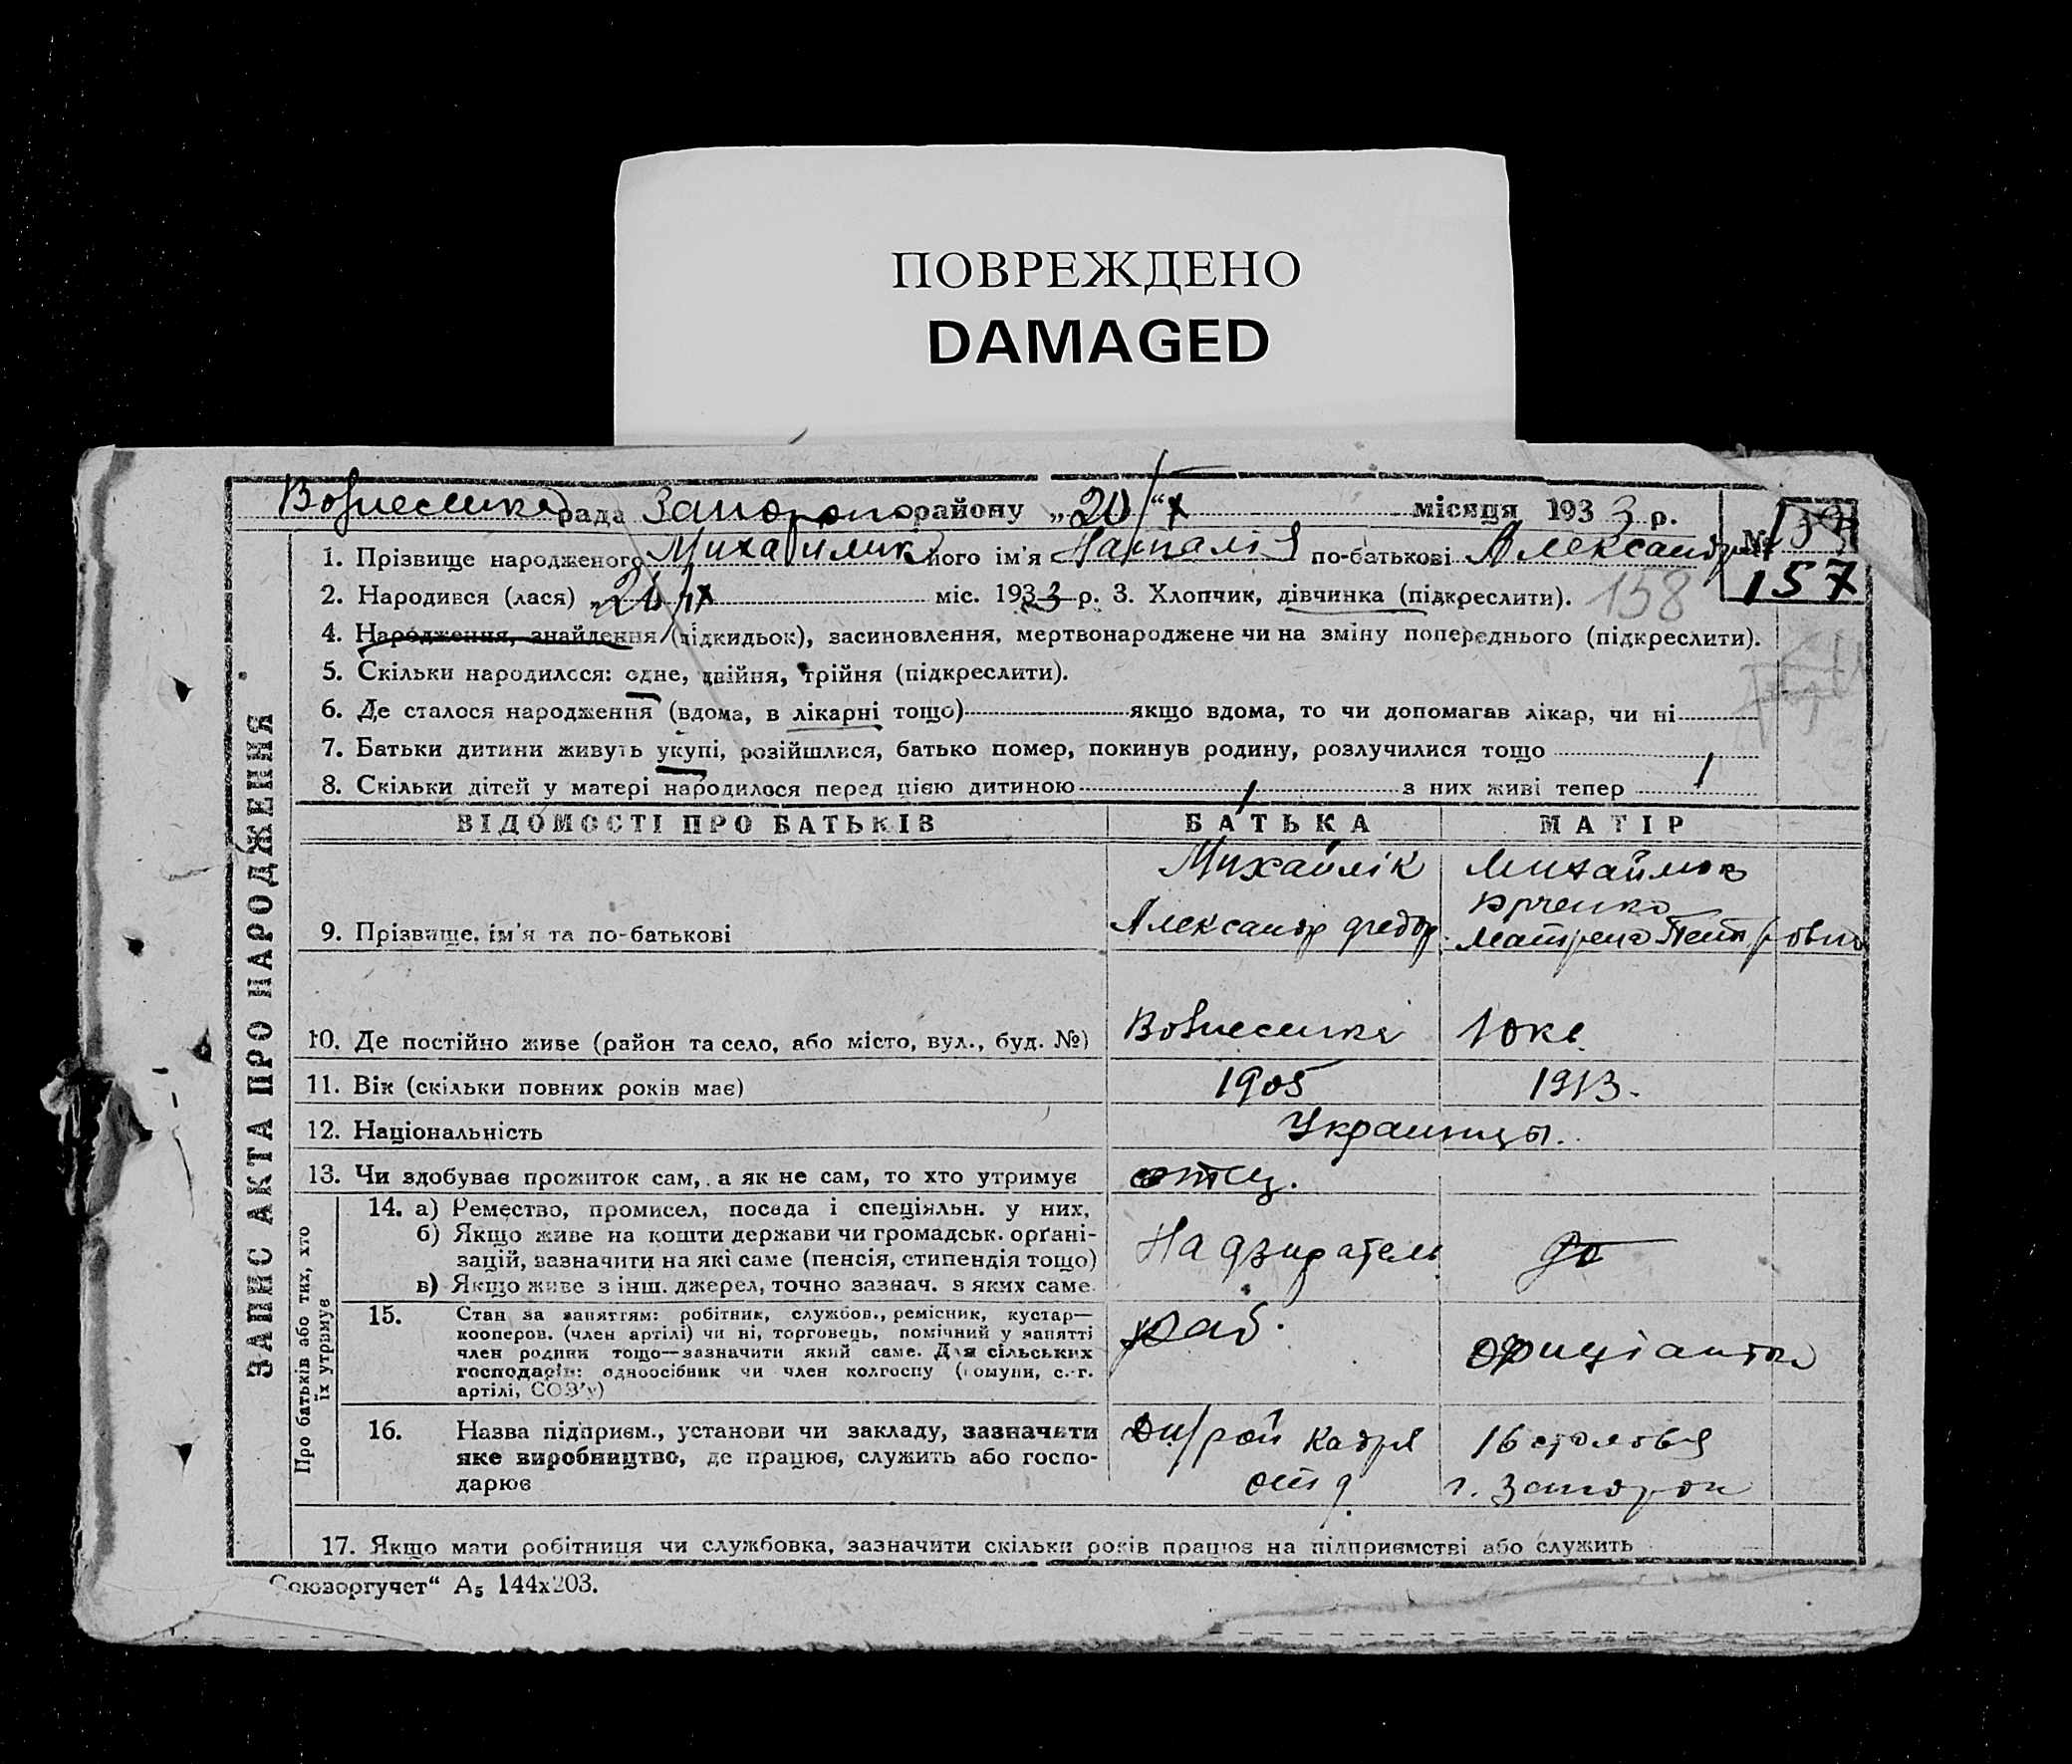 ПОВРЕЖДЕНО
DAMAGED
рада району „20/“х місяця 1933 р. №
157
1. Прізвище народженого Михайлик його ім'я Наталія по-батькові Александр
2. Народився (лася) міс. 1933 р. 3. Хлопчик, дівчинка (підкреслити). 158
4. Народження, знайдення (підкидьок), засиновлення, мертвонароджене чи на зміну попереднього (підкреслити).
5. Скільки народилося: одне, двійня, трійня (підкреслити).
6. Де сталося народження (вдома, в лікарні тощо) якщо вдома, то чи допомагав лікар, чи ні
7. Батьки дитини живуть укупі, розійшлися, батько помер, покинув родину, розлучилися тощо
8. Скільки дітей у матері народилося перед цією дитиною 1 з них живі тепер 1
ЗАПИС АКТА ПРО НАРОДЖЕННЯ
ВІДОМОСТІ ПРО БАТЬКІВ БАТЬКА МАТІР
Михайлік
9. Прізвище, ім'я та по-батькові Александр Федор. Матрена Петровна
10. Де постійно живе (район та село, або місто, вул., буд. №) Вознесенка
11. Вік (скільки повних років має) 1905 1913.
12. Національність Украинцы.
13. Чи здобуває прожиток сам, а як не сам, то хто утримує отец.
Про батьків або тих, хто
їх утримує
14. а) Ремество, промисел, посада і спеціяльн. у них,
б) Якщо живе на кошти держави чи громадськ. орґані-
зацій, зазначити на які саме (пенсія, стипендія тощо) Надзиратель до
в) Якщо живе з інш. джерел, точно зазнач. з яких саме.
15. Стан за заняттям: робітник, службов., ремісник, кустар— раб.
кооперов. (член артілі) чи ні, торговець, помічний у занятті
член родини тощо—зазначити який саме. Для сільських офиціантка
господарів: одноосібник чи член колгоспу (комуни, с.-г.
артілі, СОЗ'у)
16. Назва підприєм., установи чи закладу, зазначити 16 столовая
яке виробництво, де працює, служить або госпо- г. Запорож
дарює
17. Якщо мати робітниця чи службовка, зазначити скільки років працює на підприємстві або служить
Союзоргучет“ А₅ 144х203.